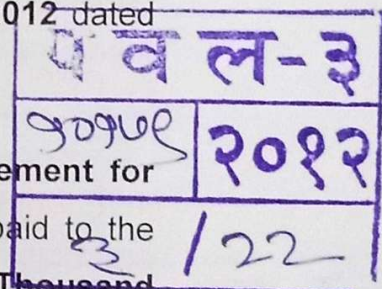 012 dated
प व ल-३
१०१७९ २०१२
ement for
paid to the
३ / २२
Thousand